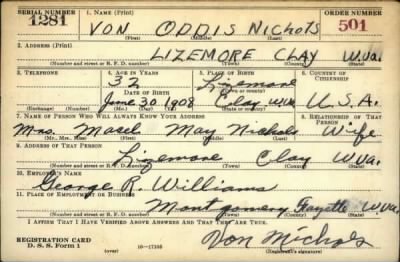 SERIAL NUMBER 1. NAME (Print) ORDER NUMBER
1281 VON ODDIS NichoLS 501
(First) (Middle) (Last)
2. ADDRESS (Print)
LIZEMORE CLAY W.Va.
(Number and street or R. F. D. number) (Town) (County) (State)
3. TELEPHONE 4. AGE IN YEARS 5. PLACE OF BIRTH 6. COUNTRY OF CITIZENSHIP
32 Lizemore
DATE OF BIRTH (Town or county)
June 30 1908 Clay W.Va. U.S.A.
(Exchange) (Number) (Mo.) (Day) (Yr.) (State or country)
7. NAME OF PERSON WHO WILL ALWAYS KNOW YOUR ADDRESS 8. RELATIONSHIP OF THAT PERSON
Mrs. May Nichols Wife
(Mr., Mrs., Miss) (First) (Middle) (Last)
9. ADDRESS OF THAT PERSON
Lizemore Clay W.Va.
(Number and street or R. F. D. number) (Town) (County) (State)
10. EMPLOYER'S NAME
George R. Williams
11. PLACE OF EMPLOYMENT OR BUSINESS
Montgomery Fayette W.Va.
(Number and street or R. F. D. number) (Town) (County) (State)
I AFFIRM THAT I HAVE VERIFIED ABOVE ANSWERS AND THAT THEY ARE TRUE.
REGISTRATION CARD
D. S. S. Form 1 (over) 16—17105 Von Nichols
(Registrant's signature)